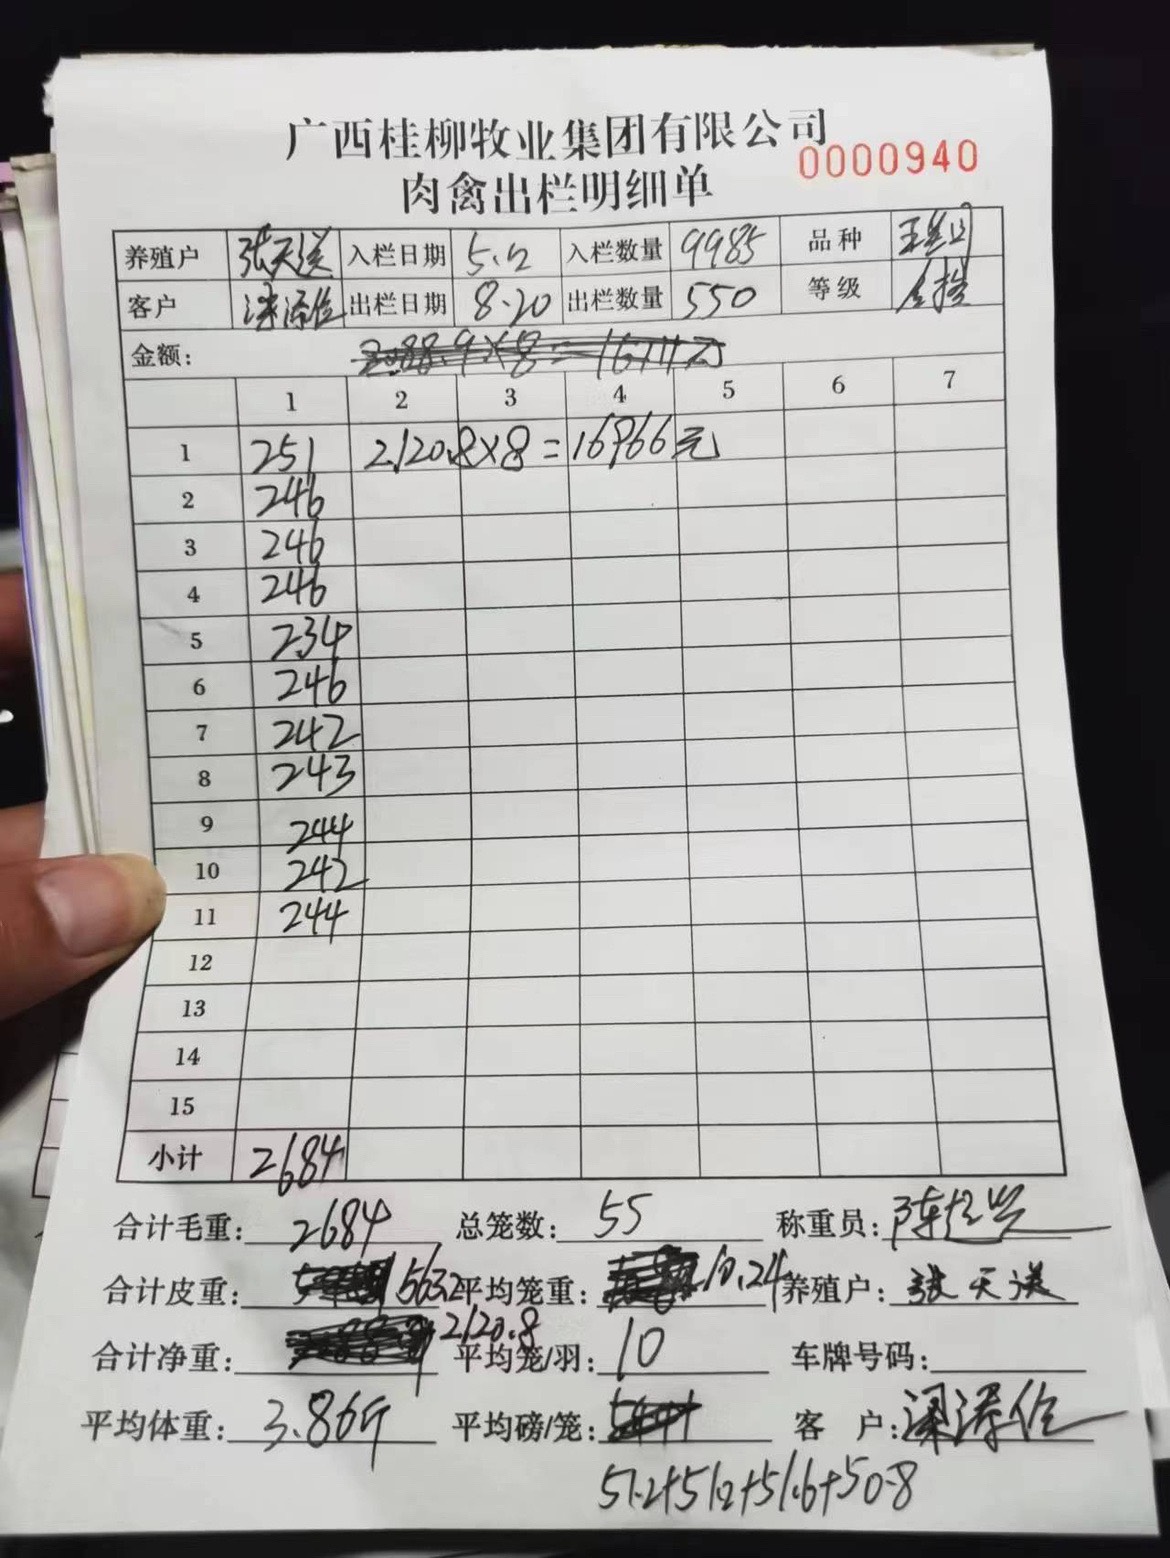 广西桂柳牧业集团有限公司
0000940
肉禽出栏明细单
养殖户 张天送 入栏日期 5.12 入栏数量 9985 品种
客户 出栏日期 8.20 出栏数量 550 等级
金额: 2088.9×8=16711元
1 2 3 4 5 6 7
1 251 2120.8×8=16966元
2 246
3 246
4 246
5 234
6 246
7 242
8 243
9 244
10 242
11 244
12
13
14
15
小计 2684
合计毛重: 2684 总笼数: 55 称重员:
合计皮重: 563.2 平均笼重: 10.24 养殖户: 张天送
合计净重: 2120.8 平均笼/羽: 10 车牌号码:
平均体重: 3.86斤 平均磅/笼: 客 户:
51.2+51.2+51.6+50.8